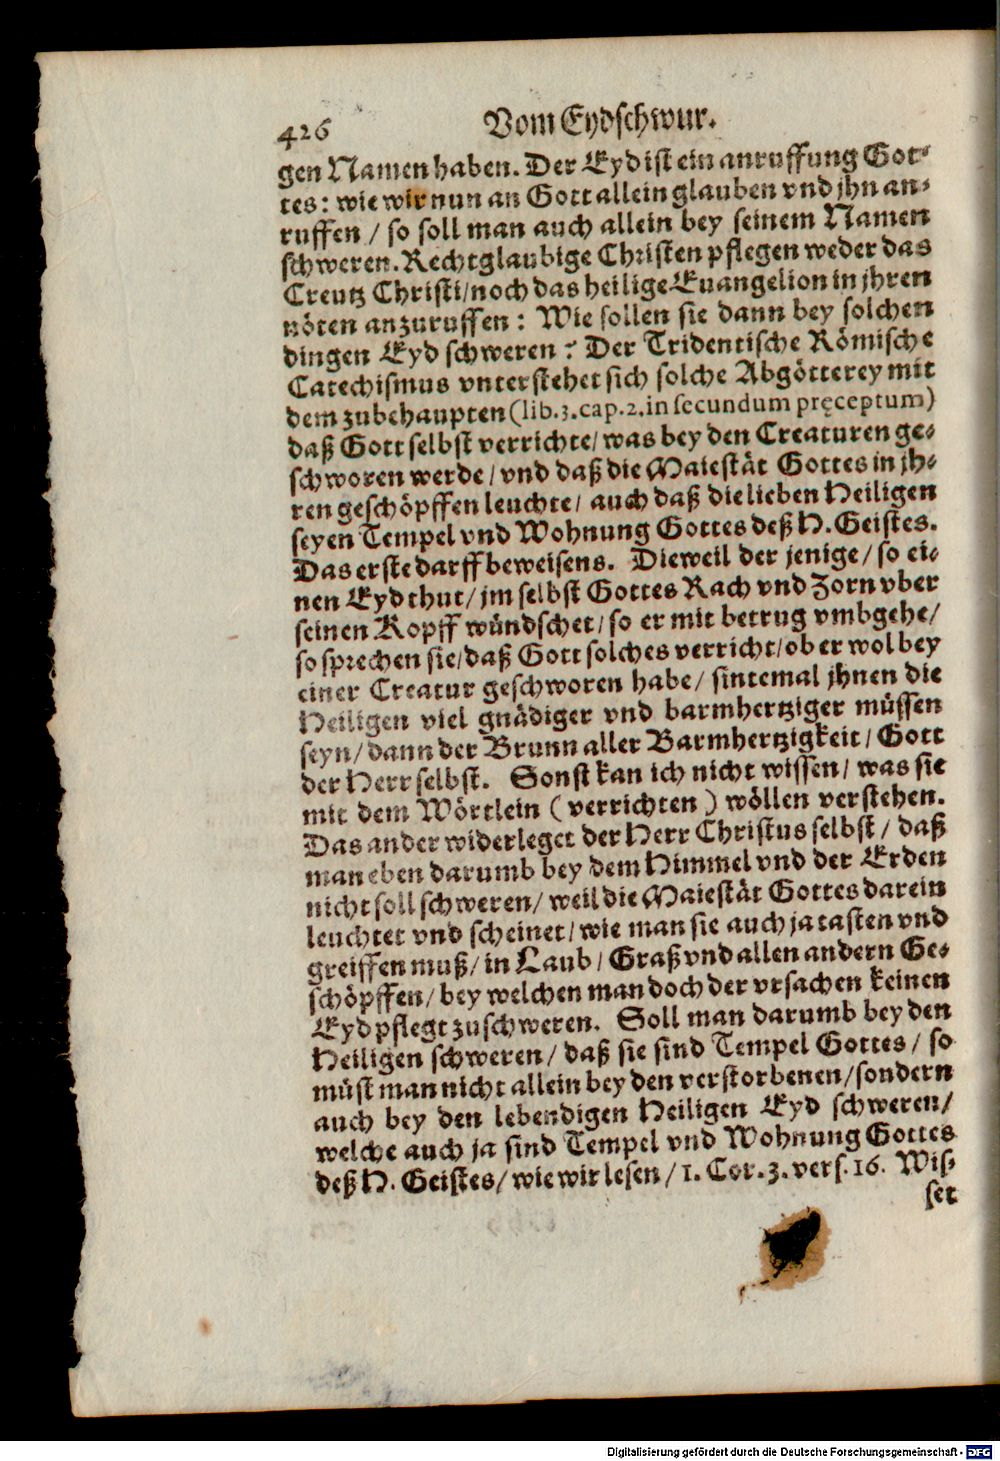 426 Vom Eydschwur.
gen Namen haben. Der Eyd ist ein anruffung Got-
tes: wie wir nun an Gott allein glauben vnd jhn an-
ruffen / so soll man auch allein bey seinem Namen
schweren. Rechtglaubige Christen pflegen weder das
Creutz Christi/ noch das heilige Euangelion in jhren
nöten anzuruffen: Wie sollen sie dann bey solchen
dingen Eyd schweren? Der Tridentische Römische
Catechismus vnterstehet sich solche Abgötterey mit
dem zubehaupten (lib.3.cap.2.in secundum pręceptum)
daß Gott selbst verrichte/ was bey den Creaturen ge-
schworen werde/ vnd daß die Maiestät Gottes in jh-
ren geschöpffen leuchte/ auch daß die lieben Heiligen
seyen Tempel vnd Wohnung Gottes deß H. Geistes.
Das erste darff beweisens. Dieweil der jenige/ so ei-
nen Eyd thut/ jm selbst Gottes Rach vnd Zorn vber
seinen Kopff wündschet/ so er mit betrug vmbgehe/
so sprechen sie/ daß Gott solches verricht/ ob er wol bey
einer Creatur geschworen habe/ sintemal jhnen die
Heiligen viel gnädiger vnd barmhertziger müssen
seyn/ dann der Brunn aller Barmhertzigkeit/ Gott
der Herr selbst. Sonst kan ich nicht wissen/ was sie
mit dem Wörtlein (verrichten) wöllen verstehen.
Das ander widerleget der Herr Christus selbst/ daß
man eben darumb bey dem Himmel vnd der Erden
nicht soll schweren/ weil die Maiestät Gottes darein
leuchtet vnd scheinet/ wie man sie auch ja tasten vnd
greiffen muß/ in Laub/ Graß vnd allen andern Ge-
schöpffen/ bey welchen man doch der vrsachen keinen
Eyd pflegt zu schweren. Soll man darumb bey den
Heiligen schweren/ daß sie sind Tempel Gottes/ so
müst man nicht allein bey den verstorbenen/ sondern
auch bey den lebendigen Heiligen Eyd schweren/
welche auch ja sind Tempel vnd Wohnung Gottes
deß H. Geistes/ wie wir lesen/ 1. Cor. 3. vers. 16. Wis-
set
Digitalisierung gefördert durch die Deutsche Forschungsgemeinschaft - DFG